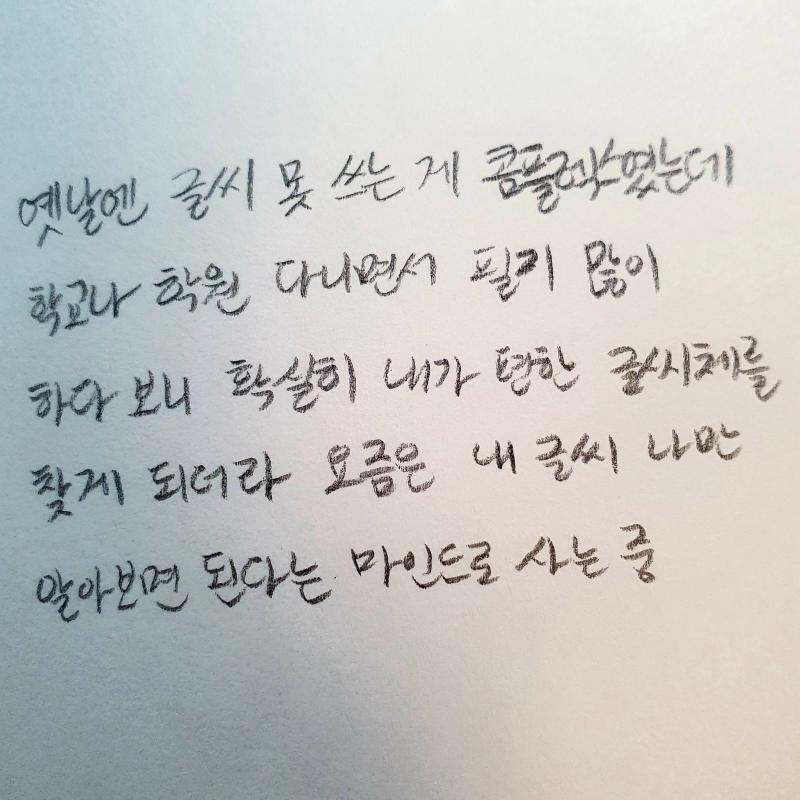 옛날엔 글씨 못 쓰는 게 콤플렉스였는데
학교나 학원 다니면서 필기 많이
하다 보니 확실히 내가 편한 글씨체를
찾게 되더라 요즘은 내 글씨 나만
알아보면 된다는 마인드로 사는 중